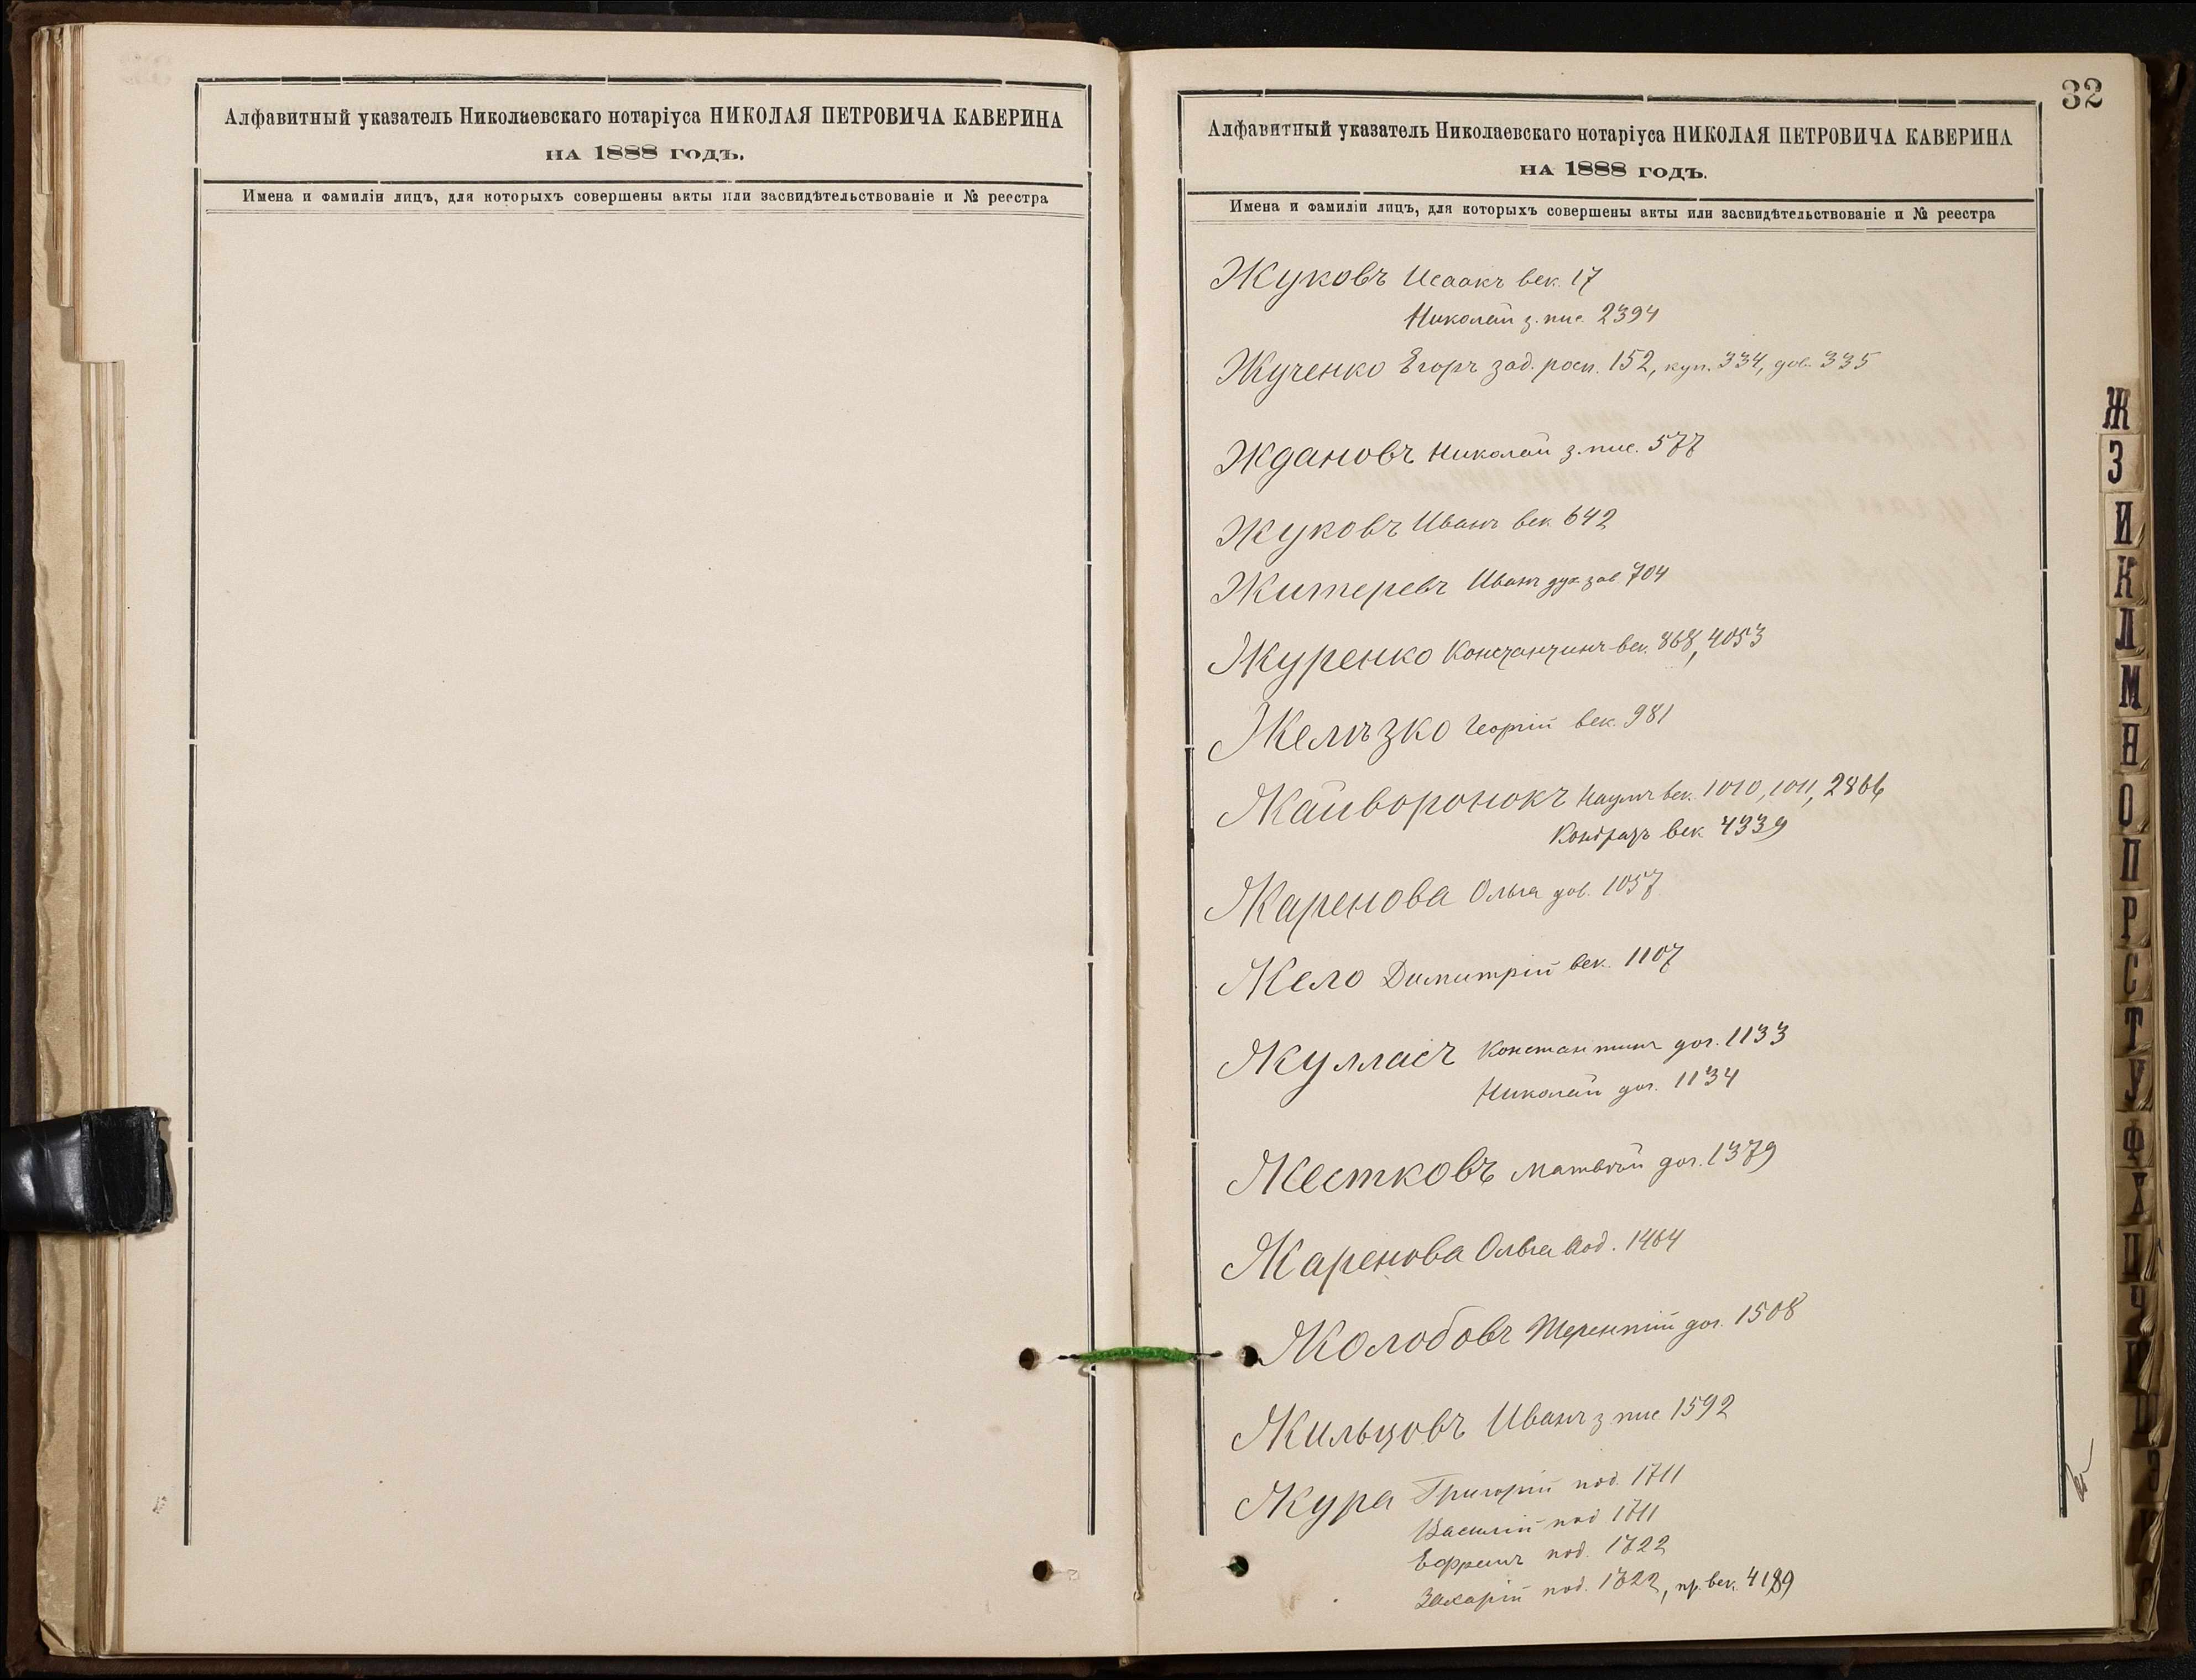 Алфавитный указатель Николаевскаго нотаріуса НИКОЛАЯ ПЕТРОВИЧА КАВЕРИНА
НА 1888 ГОДЪ.
Имена и фамиліи лицъ, для которыхъ совершены акты или засвидѣтельствованіе и № реестра
32
Алфавитный указатель Николаевскаго нотаріуса НИКОЛАЯ ПЕТРОВИЧА КАВЕРИНА
НА 1888 ГОДЪ.
Имена и фамиліи лицъ, для которыхъ совершены акты или засвидѣтельствованіе и № реестра
Жуковъ Исаакъ век. 17
Николай з. пис. 2394
Жученко Егоръ зад. росп. 152, куп. 334, дов. 335
Ждановъ Николай з. пис. 577
Жуковъ Иванъ век 642
Житеревъ Иванъ дух зав 704
Журенко Константинъ век. 868, 4053
Желѣзко Георгій век. 981
Жайворонокъ Наумъ век. 1010, 1011, 2866
Кондратъ век 4339
Жаренова Ольга дов. 1057
Жело Димитрій век. 1107
Жулласъ Константинъ дог. 1133
Николай дог. 1134
Жестковъ Матвѣй дог. 1379
Жаренова Ольга 1464
Жолобовъ Терентій дог. 1508
Жильцовъ Иванъ з пис 1592
Жура Григорій под. 1711
Василій под 1711
Ефремъ под. 1722
Захарій под. 1722, пр. век. 4189
Ж
З
И
К
Л
М
Н
О
П
Р
С
Т
У
Ф
Х
Ц
Ч